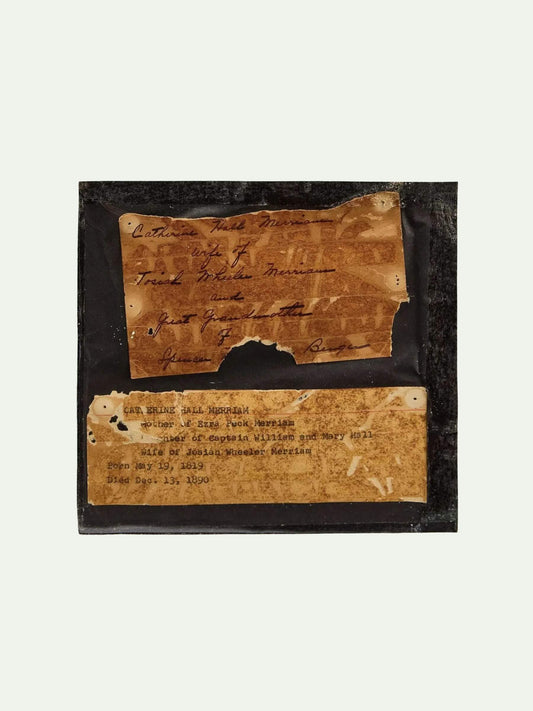 Catherine Hall Merriam
Wife of
Josiah Wheeler Merriam
and
Great Grandmother
of
Spencer Benger
CATHERINE HALL MERRIAM
Mother of Ezra Peck Merriam
of Captain William and Mary Hall
Wife of Josiah Wheeler Merriam
Born May 19, 1819
Died Dec. 13, 1890